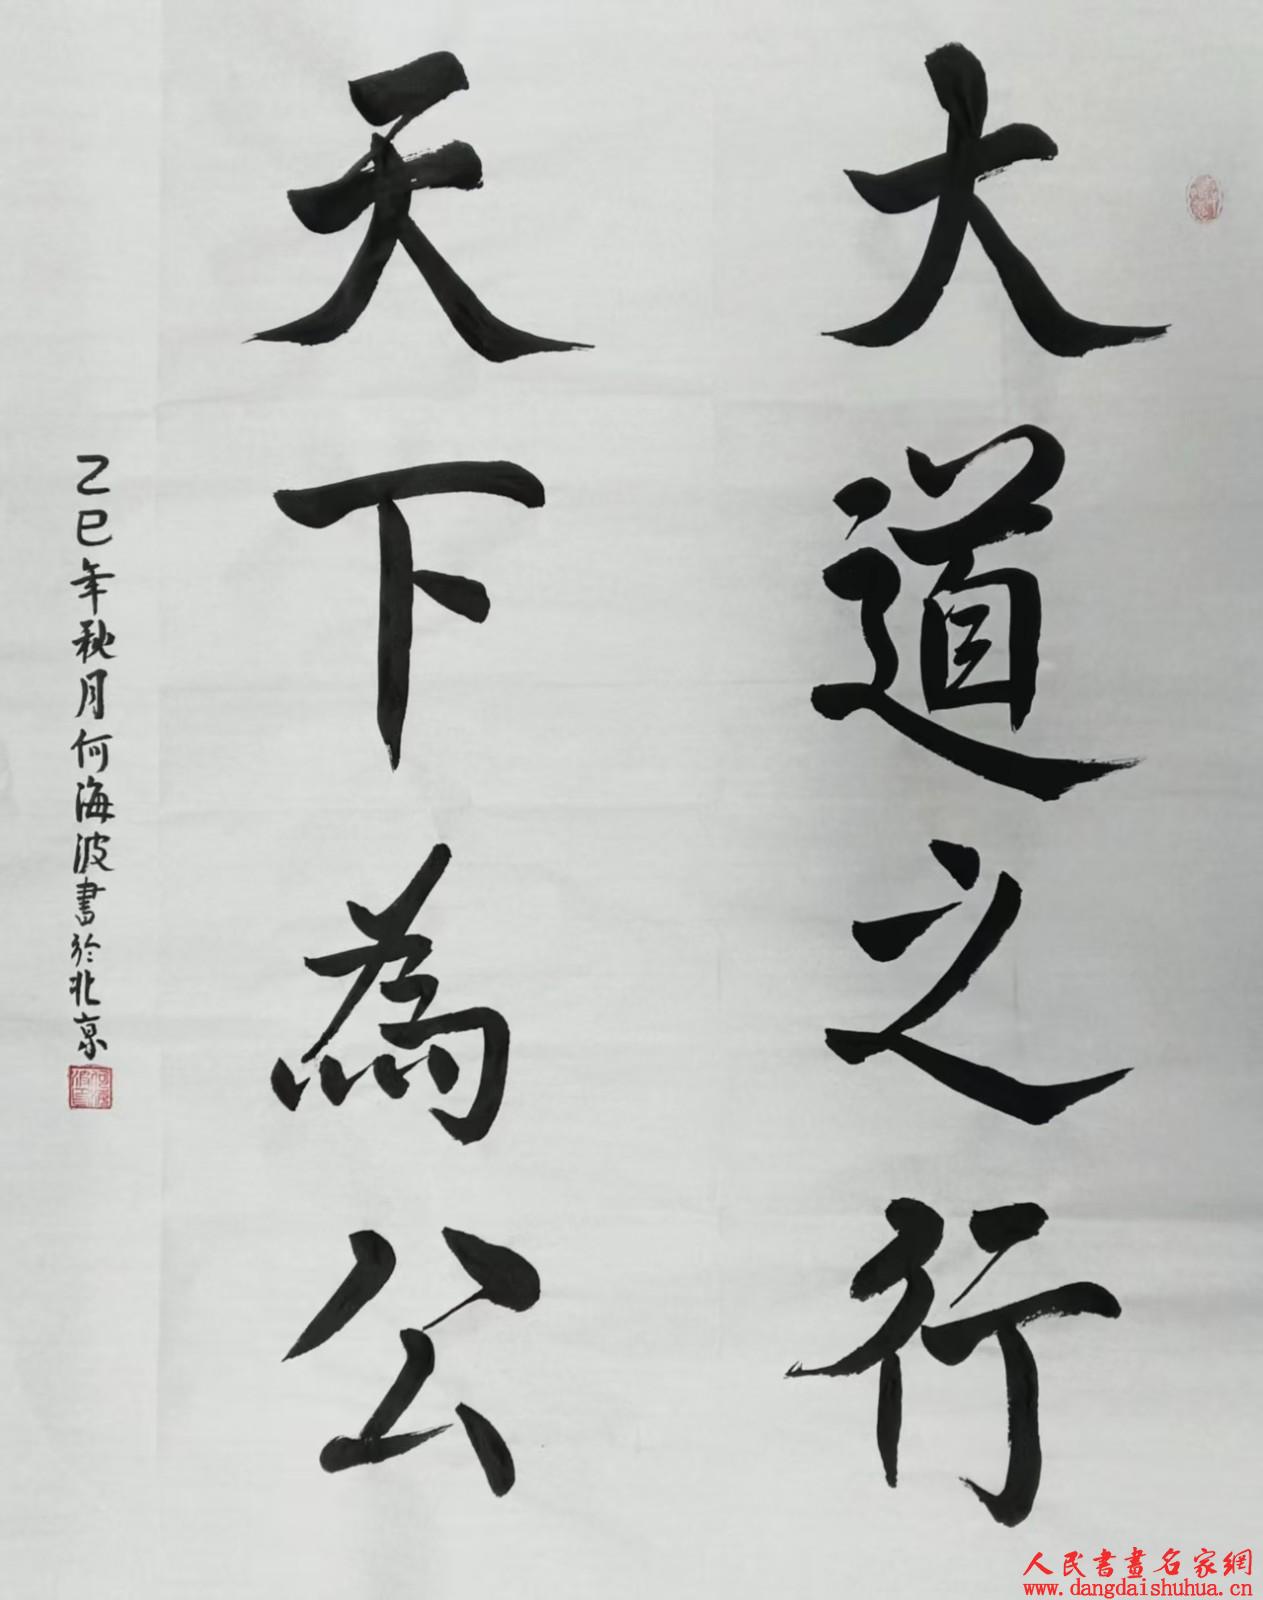 大道之行
天下為公
乙巳年秋月何海波書於北京
人民書畫名家網
www.dangdaishuhua.cn